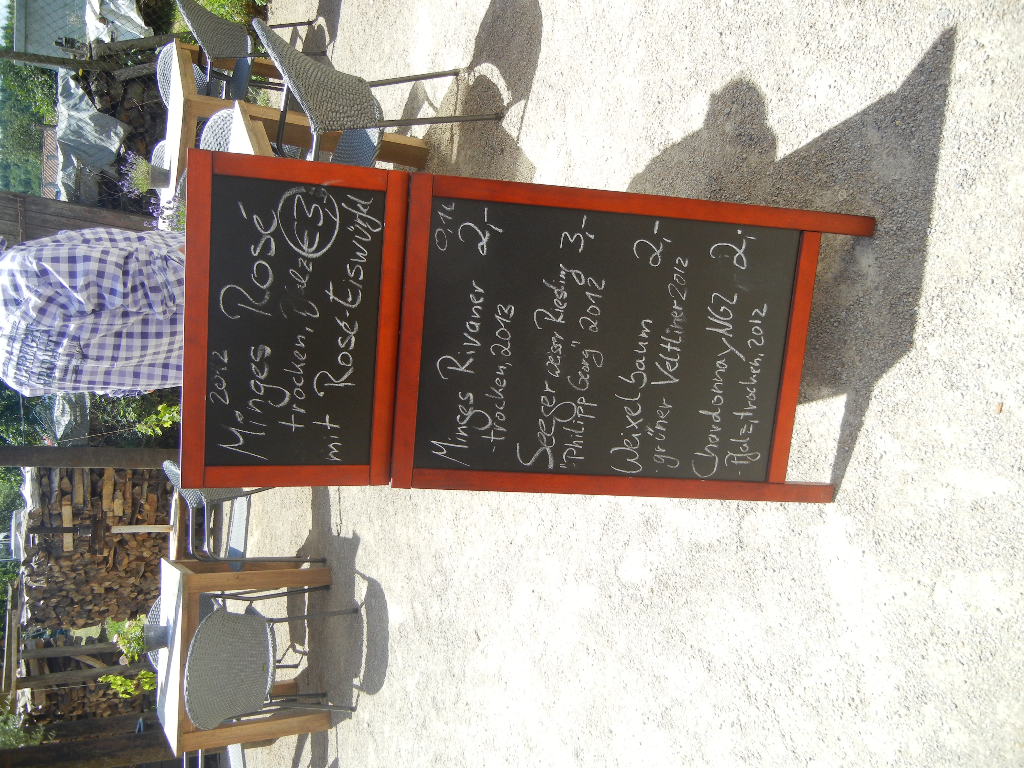 2012
Minges Rosé
trocken, €3,-
mit Rosé-Eiswürfel
0,1l
Minges Rivaner 2,-
trocken, 2013
Seeger assy Riesling 3,-
"Philipp Georg" 2012
Weixelbaum 2,-
grüner Veltliner 2012
Chardonnay, NGZ 2,-
Pfalz, trocken, 2012